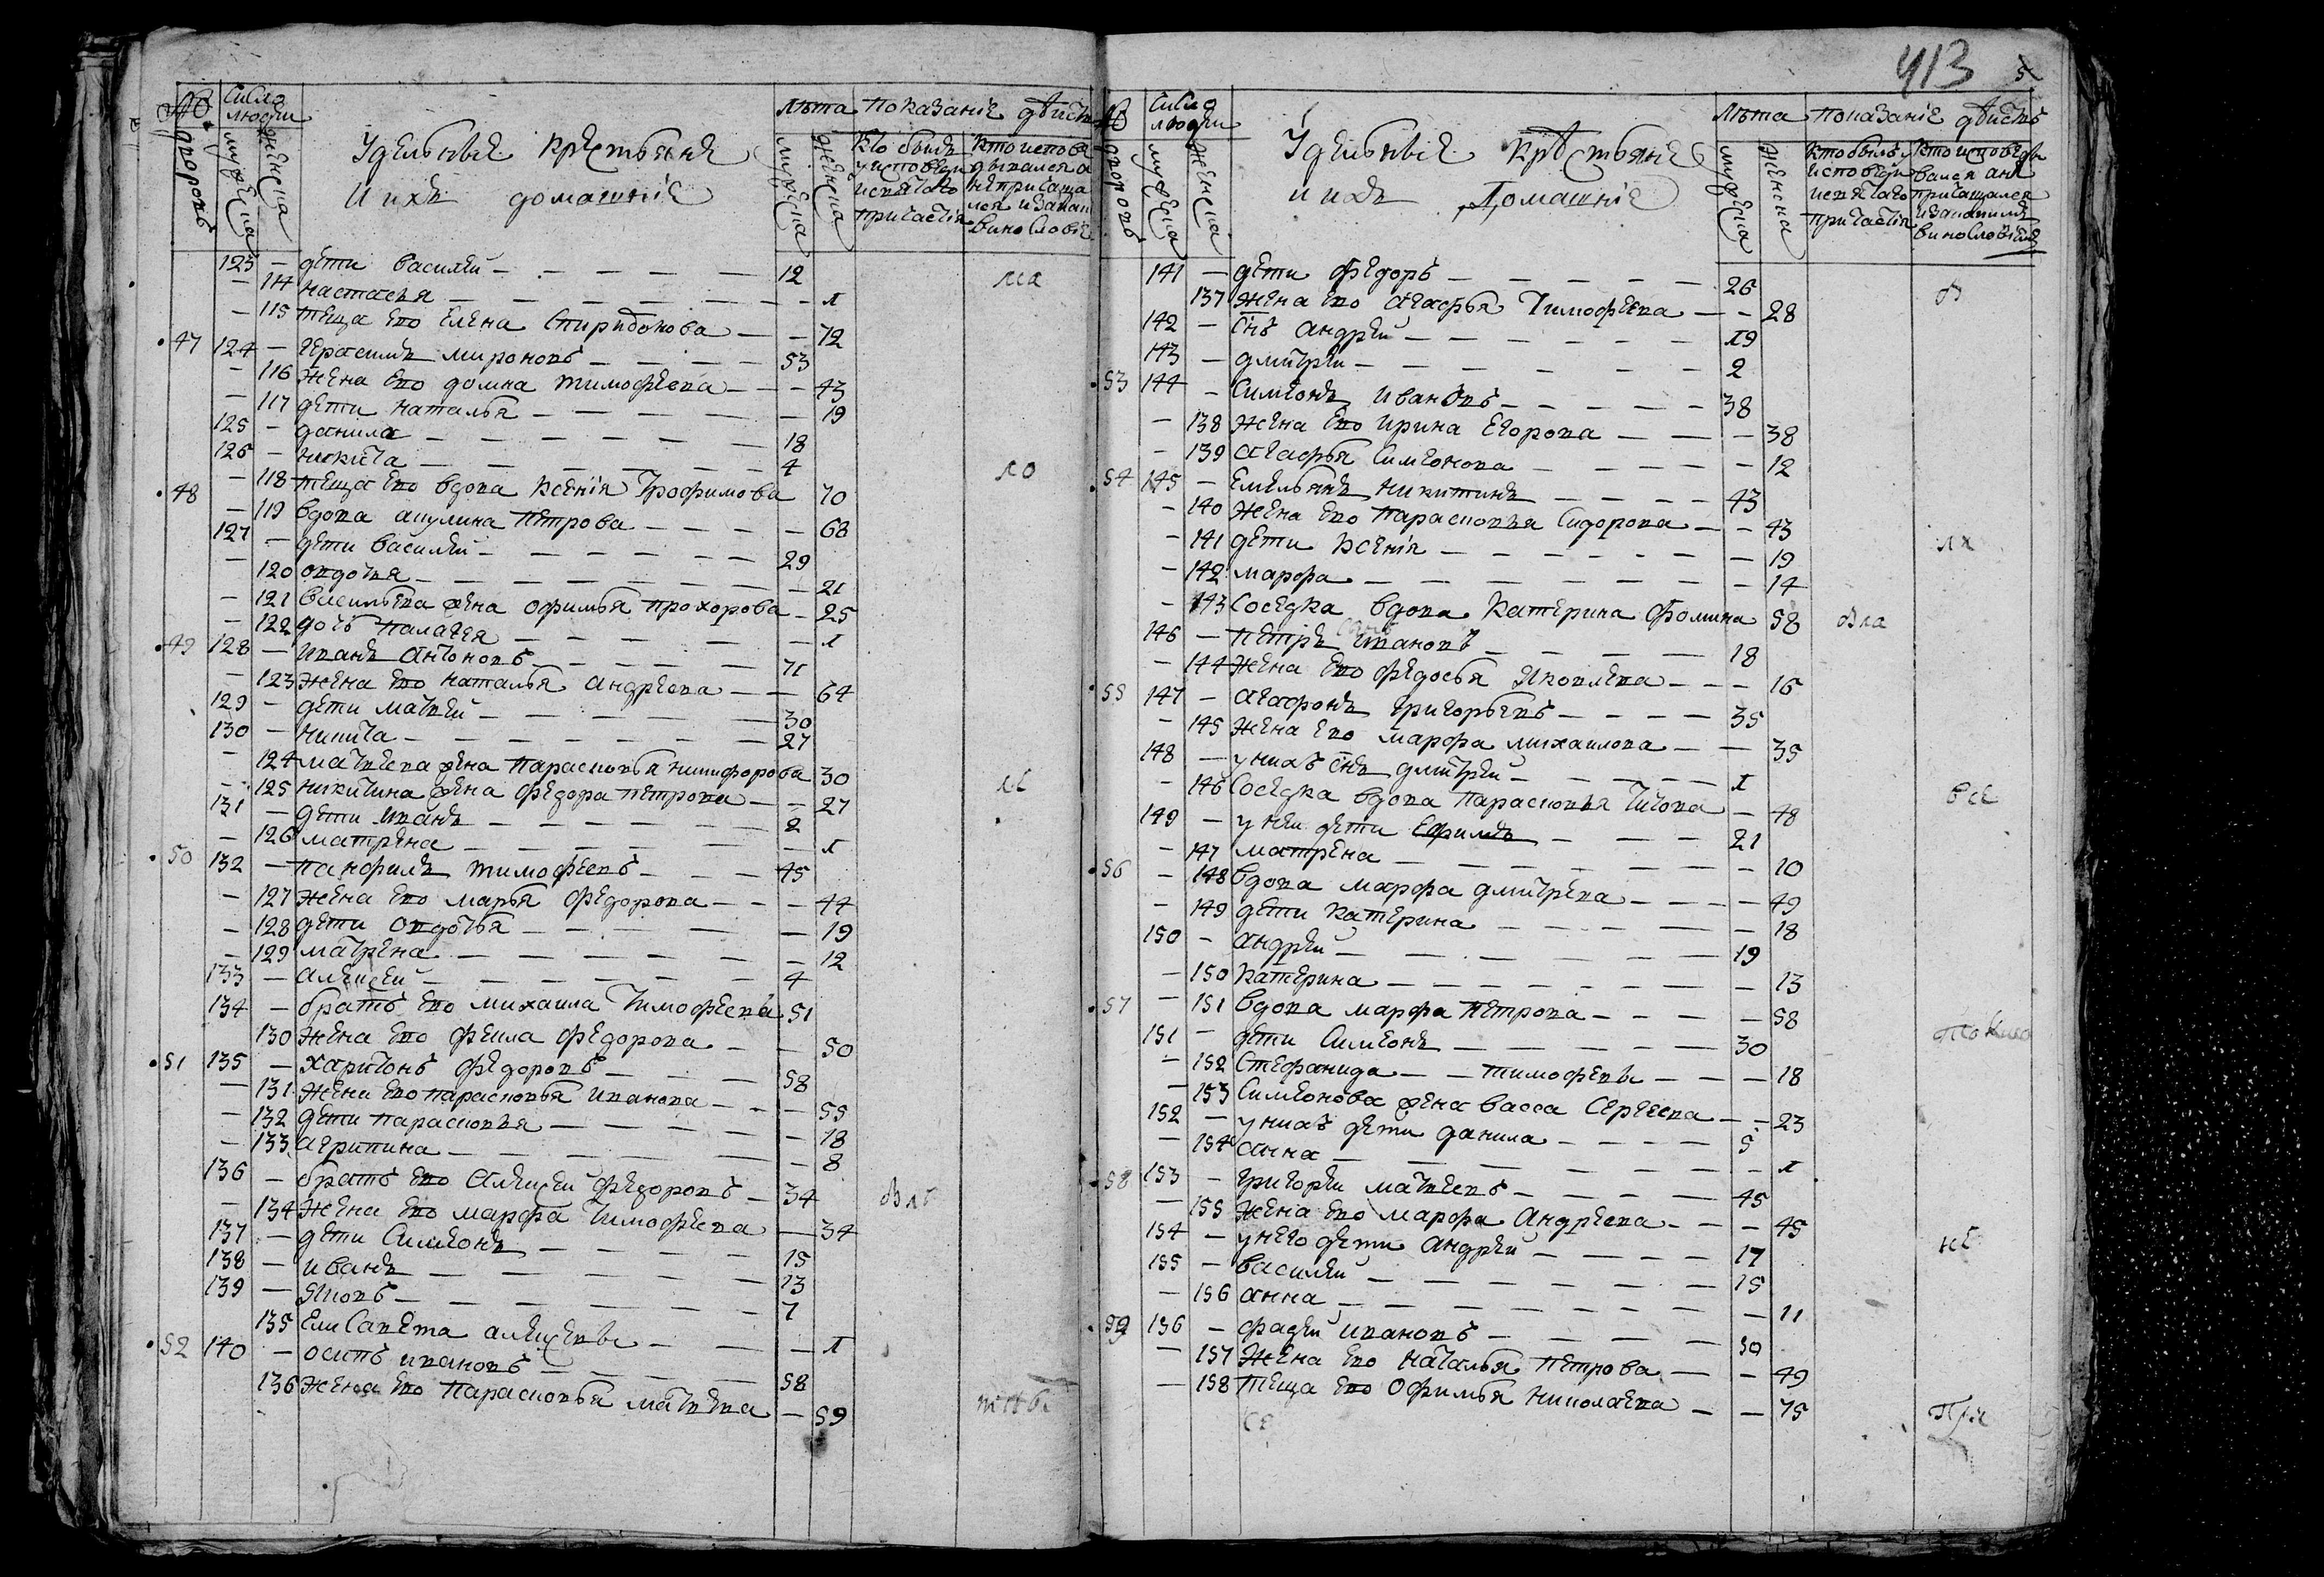 413
5
№ дворовъ
Число людей
мужеска
женска
Удельныя крестьяня
и ихъ домашнiе
Лѣта
мужеска
женска
показанiе дѣйств
Кто былъ у исповеди и святаго причастiя
Кто исповедывался а не причащался и за какимъ винословiе
123 – дети василей – 12
– 114 настасья – 1
– 115 теща ево Елена Спиридонова – 72
47 124 – Герасимъ мироновъ – 53
– 116 жена ево домна тимофеева – 43
– 117 дети наталья – 19
125 – данила – 18
126 – никита – 4
– 118 теща ево вдова Ксенiя Трофимова 70
48 – 119 вдова акулина петрова – 68
127 – дети василей – 29
– 120 овдотья – 21
– 121 васильева жена офимья прохорова – 25
– 122 дочь палагея – 1
49 128 – иванъ антоновъ – 71
– 123 жена ево наталья андреева – 64
129 – дети матвей – 30
130 – никита – 27
– 124 матвеева жена парасковья никифорова 30
– 125 никитина жена федора петрова – 27
131 – дети иванъ – 2
– 126 матрена – 1
50 132 – панфилъ тимофеевъ – 45
– 127 жена ево марья федорова – 44
– 128 дети овдотья – 19
– 129 матрена – 12
133 – алексей – 4
134 – братъ ево михаила тимофеевъ 51
130 жена ево фекла федорова – 50
51 135 – харитонъ федоровъ – 58
– 131 жена ево парасковья иванова – 55
– 132 дети парасковья – 18
– 133 агрипина – 8
136 – братъ ево алексей федоровъ – 34
– 134 жена ево марфа тимофеева – 34
137 – дети Симеонъ – 15
138 – иванъ – 13
139 – яковъ – 7
135 Елисавета алексеевы – 1
52 140 – осипъ ивановъ – 58
136 жена ево парасковья матвева – 59
№ дворовъ
Число людей
мужеска
женска
Удельныiе крестьянiе
и ихъ домашнiе
Лѣта
мужеска
женска
показанiе дѣйствъ
Кто былъ у исповеди и святаго причастiя
141 – дети федоръ – 26
137 жена ево агафья тимофеева – 28
142 – снъ андрей – 19
143 – дмитрей – 2
53 144 – Симеонъ ивановъ – 38
– 138 жена ево ирина Егорова – 38
– 139 агафья Симеонова – 12
54 145 – Емельянъ никитинъ – 43
– 140 жена ево парасковья Сидорова – 43
– 141 дети Ксенiя – 19
– 142 марфа – 14
– 143 Соседка вдова катерина фомина 58
146 – петръ ивановъ – 18
– 144 жена ево федосья Яковлева – 16
55 147 – агафонъ григорьевъ – 35
– 145 жена ево марфа михаилова – 35
148 – у нихъ снъ дмитрей – 1
– 146 Соседка вдова парасковья титова – 48
149 – у неи дети Ефимъ – 21
– 147 матрена – 10
56 – 148 вдова марфа дмитрева – 49
– 149 дети катерина – 18
150 – андрей – 19
– 150 катерина – 13
57 – 151 вдова марфа петрова – 58
151 – дети Симеонъ – 30
– 152 Стефанида – тимофевы – 18
– 153 Симеонова жена васса Сергеева – 23
152 – у нихъ дети данила – 5
– 154 анна – 1
58 153 – григорей матвеевъ – 45
– 155 жена ево марфа андреева – 45
154 – у него дети андрей – 17
155 – василей – 15
– 156 анна – 11
59 156 – фадей ивановъ – 50
– 157 жена ево наталья петрова – 49
– 158 теща ево офимья николаева – 75